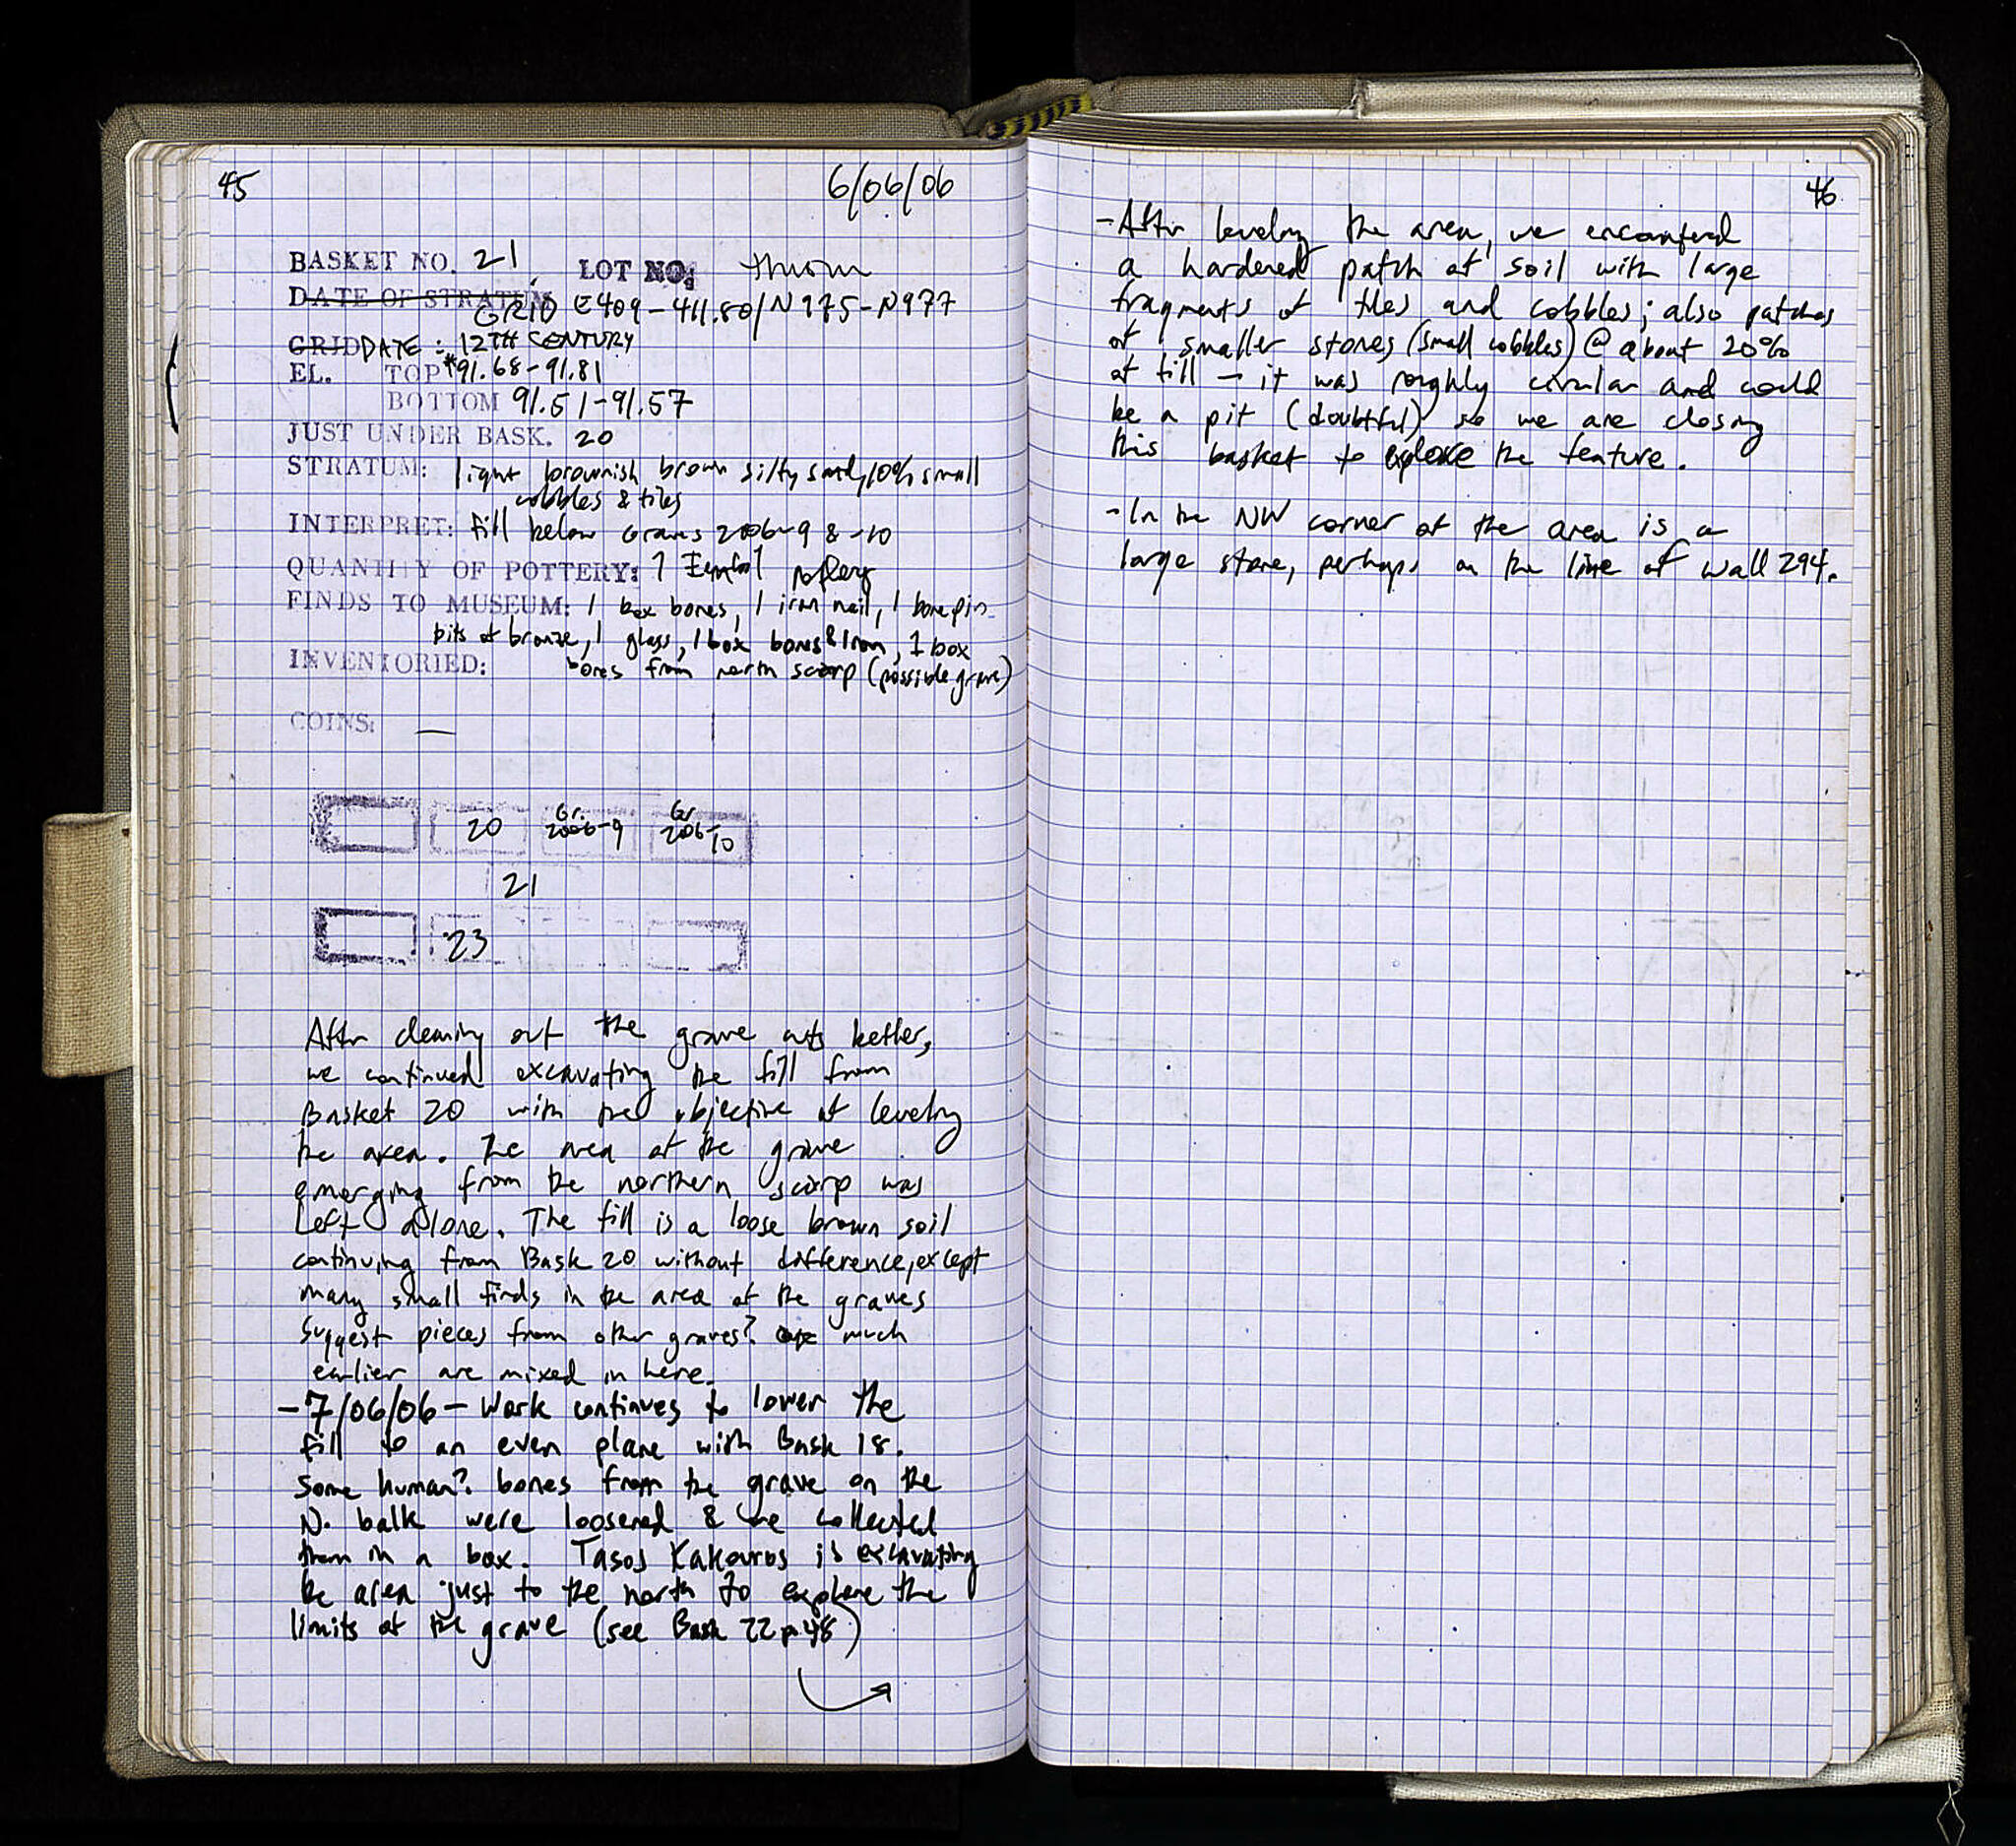 45
6/06/06
BASKET NO. 21 LOT NO: thrown
DATE OF STRATUM
GRID E409-411.80/N975-N977
GRID DATE: 12TH CENTURY
EL. TOP *91.68-91.81
BOTTOM 91.51-91.57
JUST UNDER BASK. 20
STRATUM: light brownish brown silty sand, 10% small
cobbles & tiles
INTERPRET: fill below Graves 2006-9 & -10
QUANTITY OF POTTERY: 1 pottery
FINDS TO MUSEUM: 1 box bones, 1 iron nail, 1 bone pin
bits of bronze, 1 glass, 1 box bones & Iron, 1 box
INVENTORIED: bones from north scarp (possible grave)
COINS: —
20 Gr. 2006-9 Gr 2006-10
21
23
After cleaning out the grave cuts better,
we continued excavating the fill from
Basket 20 with the objective of leveling
the area. The area of the grave
emerging from the northern scarp was
left alone. The fill is a loose brown soil
continuing from Bask 20 without difference, except
many small finds in the area of the graves
suggest pieces from other graves? much
earlier are mixed in here.
-7/06/06- Work continues to lower the
fill to an even plane with Bask 18.
Some human? bones from the grave on the
N. balk were loosened & we collected
them in a box. Tasos Kakouros is excavating
the area just to the north to explore the
limits of the grave (see Bask 22 p 48)
46
-After leveling the area, we encountered
a hardened patch of soil with large
fragments of tiles and cobbles; also patches
of smaller stones (small cobbles) @ about 20%
of fill - it was roughly circular and could
be a pit (doubtful) so we are closing
this basket to explore the feature.
-In the NW corner of the area is a
large stone, perhaps on the line of wall 294.